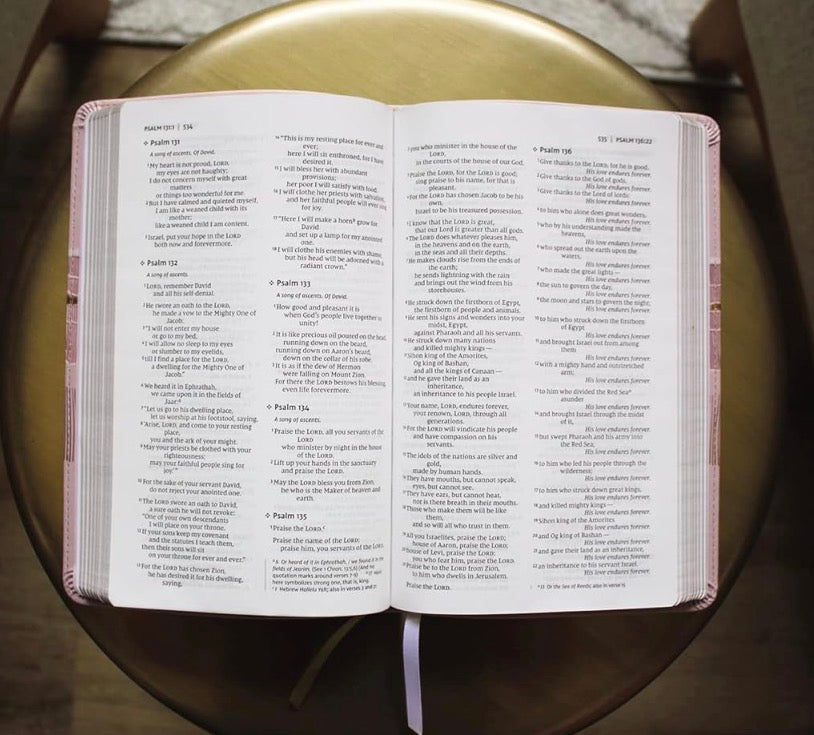 PSALM 131:1 | 534
Psalm 131
A song of ascents. Of David.
1 My heart is not proud, LORD,
my eyes are not haughty;
I do not concern myself with great
matters
or things too wonderful for me.
2 But I have calmed and quieted myself,
I am like a weaned child with its
mother;
like a weaned child I am content.
3 Israel, put your hope in the LORD
both now and forevermore.
Psalm 132
A song of ascents.
1 LORD, remember David
and all his self-denial.
2 He swore an oath to the LORD,
he made a vow to the Mighty One of
Jacob:
3 "I will not enter my house
or go to my bed,
4 I will allow no sleep to my eyes
or slumber to my eyelids,
5 till I find a place for the LORD,
a dwelling for the Mighty One of
Jacob."
6 We heard it in Ephrathah,
we came upon it in the fields of
Jaar:
7 "Let us go to his dwelling place,
let us worship at his footstool, saying,
8 'Arise, LORD, and come to your resting
place,
you and the ark of your might.
9 May your priests be clothed with your
righteousness;
may your faithful people sing for
joy.'"
10 For the sake of your servant David,
do not reject your anointed one.
11 The LORD swore an oath to David,
a sure oath he will not revoke:
"One of your own descendants
I will place on your throne.
12 If your sons keep my covenant
and the statutes I teach them,
then their sons will sit
on your throne for ever and ever."
13 For the LORD has chosen Zion,
he has desired it for his dwelling,
saying,
14 "This is my resting place for ever and
ever;
here I will sit enthroned, for I have
desired it.
15 I will bless her with abundant
provisions;
her poor I will satisfy with food.
16 I will clothe her priests with salvation,
and her faithful people will ever sing
for joy.
17 "Here I will make a horn grow for
David
and set up a lamp for my anointed
one.
18 I will clothe his enemies with shame,
but his head will be adorned with a
radiant crown."
Psalm 133
A song of ascents. Of David.
1 How good and pleasant it is
when God's people live together in
unity!
2 It is like precious oil poured on the head,
running down on the beard,
running down on Aaron's beard,
down on the collar of his robe.
3 It is as if the dew of Hermon
were falling on Mount Zion.
For there the LORD bestows his blessing,
even life forevermore.
Psalm 134
A song of ascents.
1 Praise the LORD, all you servants of the
LORD
who minister by night in the house
of the LORD.
2 Lift up your hands in the sanctuary
and praise the LORD.
3 May the LORD bless you from Zion,
he who is the Maker of heaven and
earth.
Psalm 135
1 Praise the LORD.
Praise the name of the LORD;
praise him, you servants of the LORD,
6 Or heard of it in Ephrathah, / we found it in the
fields of Jearim. (See 1 Chron. 13:5,6) (and no
quotation marks around verses 7-9) 17 Horn
here symbolizes strong one, that is, king.
1 Hebrew Hallelu Yah; also in verses 3 and 21
535 | PSALM 136:22
2 you who minister in the house of the
LORD,
in the courts of the house of our God.
3 Praise the LORD, for the LORD is good;
sing praise to his name, for that is
pleasant.
4 For the LORD has chosen Jacob to be his
own,
Israel to be his treasured possession.
5 I know that the LORD is great,
that our Lord is greater than all gods.
6 The LORD does whatever pleases him,
in the heavens and on the earth,
in the seas and all their depths.
7 He makes clouds rise from the ends of
the earth;
he sends lightning with the rain
and brings out the wind from his
storehouses.
8 He struck down the firstborn of Egypt,
the firstborn of people and animals.
9 He sent his signs and wonders into your
midst, Egypt,
against Pharaoh and all his servants.
10 He struck down many nations
and killed mighty kings—
11 Sihon king of the Amorites,
Og king of Bashan,
and all the kings of Canaan—
12 and he gave their land as an
inheritance,
an inheritance to his people Israel.
13 Your name, LORD, endures forever,
your renown, LORD, through all
generations.
14 For the LORD will vindicate his people
and have compassion on his
servants.
15 The idols of the nations are silver and
gold,
made by human hands.
16 They have mouths, but cannot speak,
eyes, but cannot see.
17 They have ears, but cannot hear,
nor is there breath in their mouths.
18 Those who make them will be like
them,
and so will all who trust in them.
19 All you Israelites, praise the LORD;
house of Aaron, praise the LORD;
20 house of Levi, praise the LORD;
you who fear him, praise the LORD.
21 Praise be to the LORD from Zion,
to him who dwells in Jerusalem.
Praise the LORD.
Psalm 136
1 Give thanks to the LORD, for he is good.
His love endures forever.
2 Give thanks to the God of gods.
His love endures forever.
3 Give thanks to the Lord of lords:
His love endures forever.
4 to him who alone does great wonders,
His love endures forever.
5 who by his understanding made the
heavens,
His love endures forever.
6 who spread out the earth upon the
waters,
His love endures forever.
7 who made the great lights—
His love endures forever.
8 the sun to govern the day,
His love endures forever.
9 the moon and stars to govern the night;
His love endures forever.
10 to him who struck down the firstborn
of Egypt
His love endures forever.
11 and brought Israel out from among
them
His love endures forever.
12 with a mighty hand and outstretched
arm;
His love endures forever.
13 to him who divided the Red Sea
asunder
His love endures forever.
14 and brought Israel through the midst
of it,
His love endures forever.
15 but swept Pharaoh and his army into
the Red Sea;
His love endures forever.
16 to him who led his people through the
wilderness;
His love endures forever.
17 to him who struck down great kings,
His love endures forever.
18 and killed mighty kings—
His love endures forever.
19 Sihon king of the Amorites
His love endures forever.
20 and Og king of Bashan—
His love endures forever.
21 and gave their land as an inheritance,
His love endures forever.
22 an inheritance to his servant Israel.
His love endures forever.
13 Or the Sea of Reeds; also in verse 15